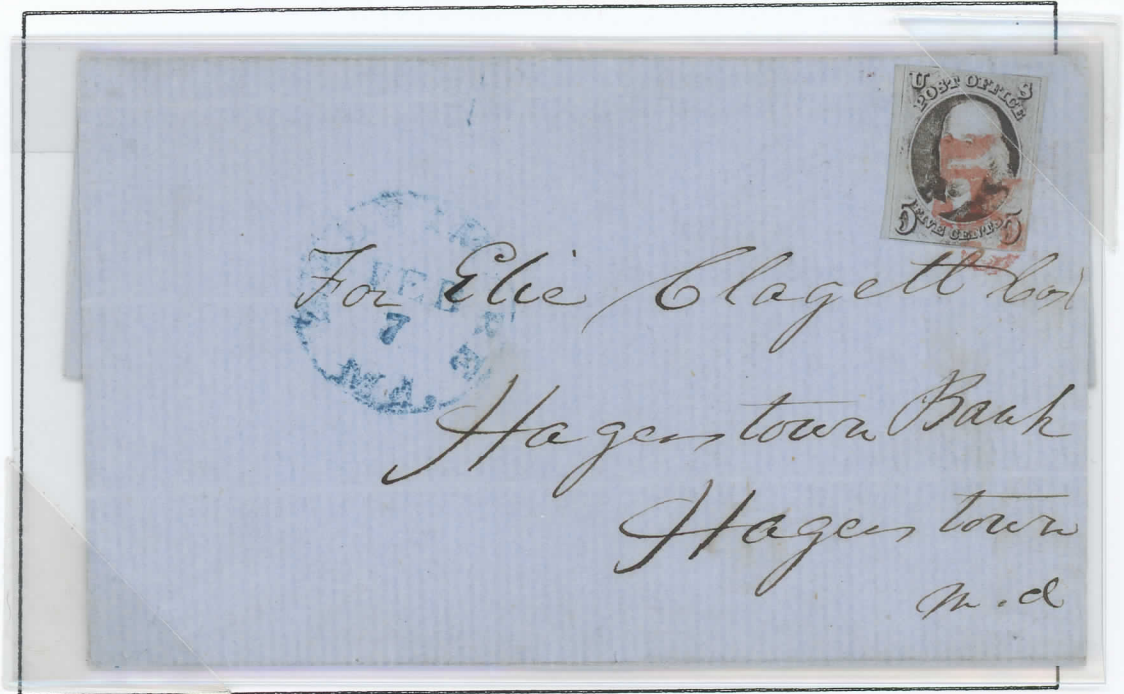 U S
POST OFFICE
5 FIVE CENTS 5
FEB
7
MD.
For Elie Clagett
Hagerstown Bank
Hagerstown
M.d